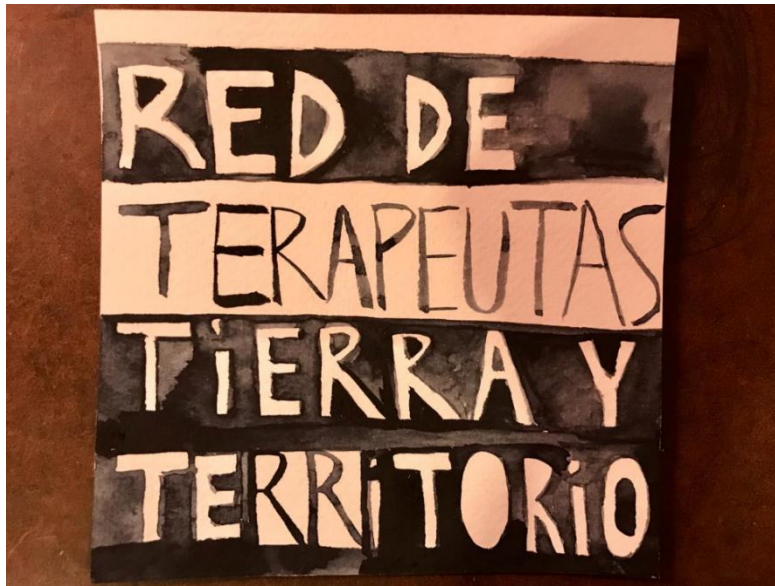 RED DE
TERAPEUTAS
TiERRA Y
TERRiTORiO